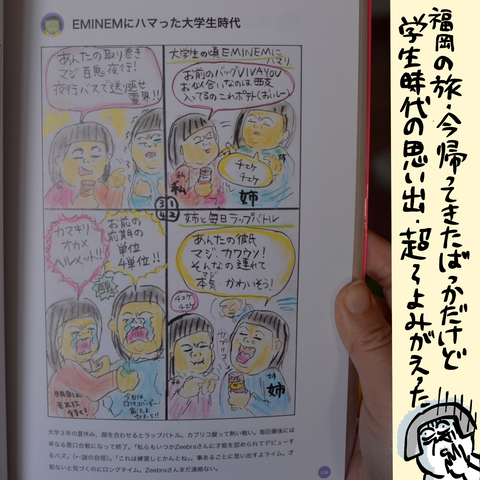 EMINEMにハマった大学生時代
大学生の頃EMINEMに
ハマり
お前のバッグVIVAYOU
お似合いなのは西友
入ってるのこれポテト(おいしー)
チェケ
チェケ
私
姉
姉と毎日ラップバトル
あんたの彼氏
マジ、カワウソ!
そんなの連れて
本気、かわいそう!
チェケ
チェケ
姉
あんたの取り巻き
マジ百鬼夜行!
夜行バスで送り返せ
霊界!!
お前の
前期の
単位
4単位!!
カマキリ
オカメ
ヘルメット!!!
3 1
4 2
大学3年の夏休み、顔を合わせるとラップバトル。カプリコ握って熱い戦い。毎回最後には
単なる悪口合戦になって終了。「私らもいつかZeebraさんに才能を認められてデビューす
るハズ」(←謎の自信)。「これは練習しとかんとね」。事あるごとに思い出すよライム。才
能ないと気づくのにロングタイム。Zeebraさんまだ連絡ない。
福岡の旅・今帰ってきたばっかだけど
学生時代の思い出・超よみがえった